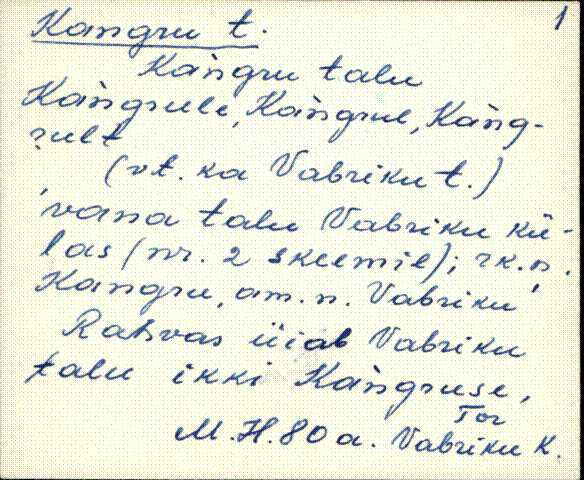 1
Kangru t.
Kàngru talu
Kàngrule, Kàngrul, Kàng-
rult
(vt. ka Vabriku t.)
'vana talu Vabriku kü-
las (nr. 2 skeemil); rk.n.
Kangru, am.n. Vabriku'
Rahvas üiab Vabriku
talu ikki Kàngruse,
Tor
M.H. 80 a. Vabriku k.